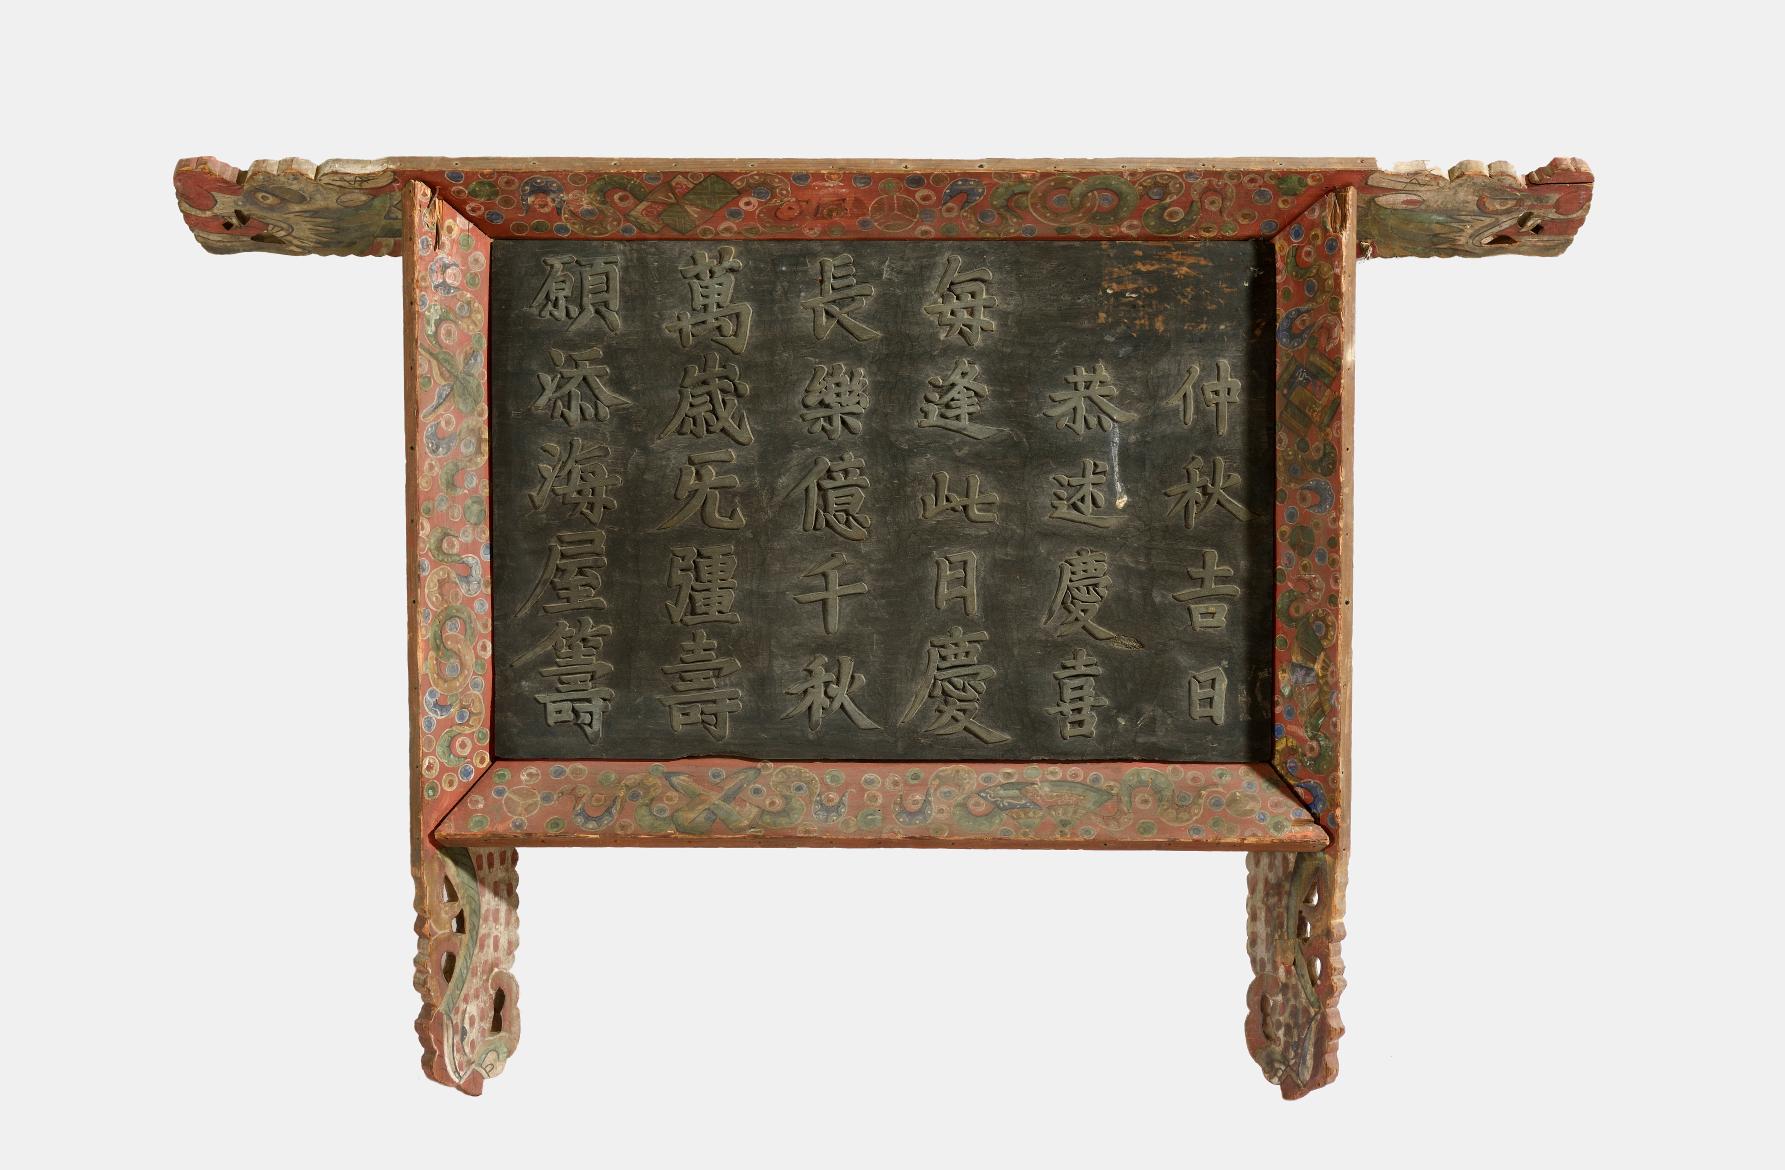 仲秋吉日
恭述慶喜
每逢此日慶
長樂億千秋
萬歲旡彊壽
願添海屋籌